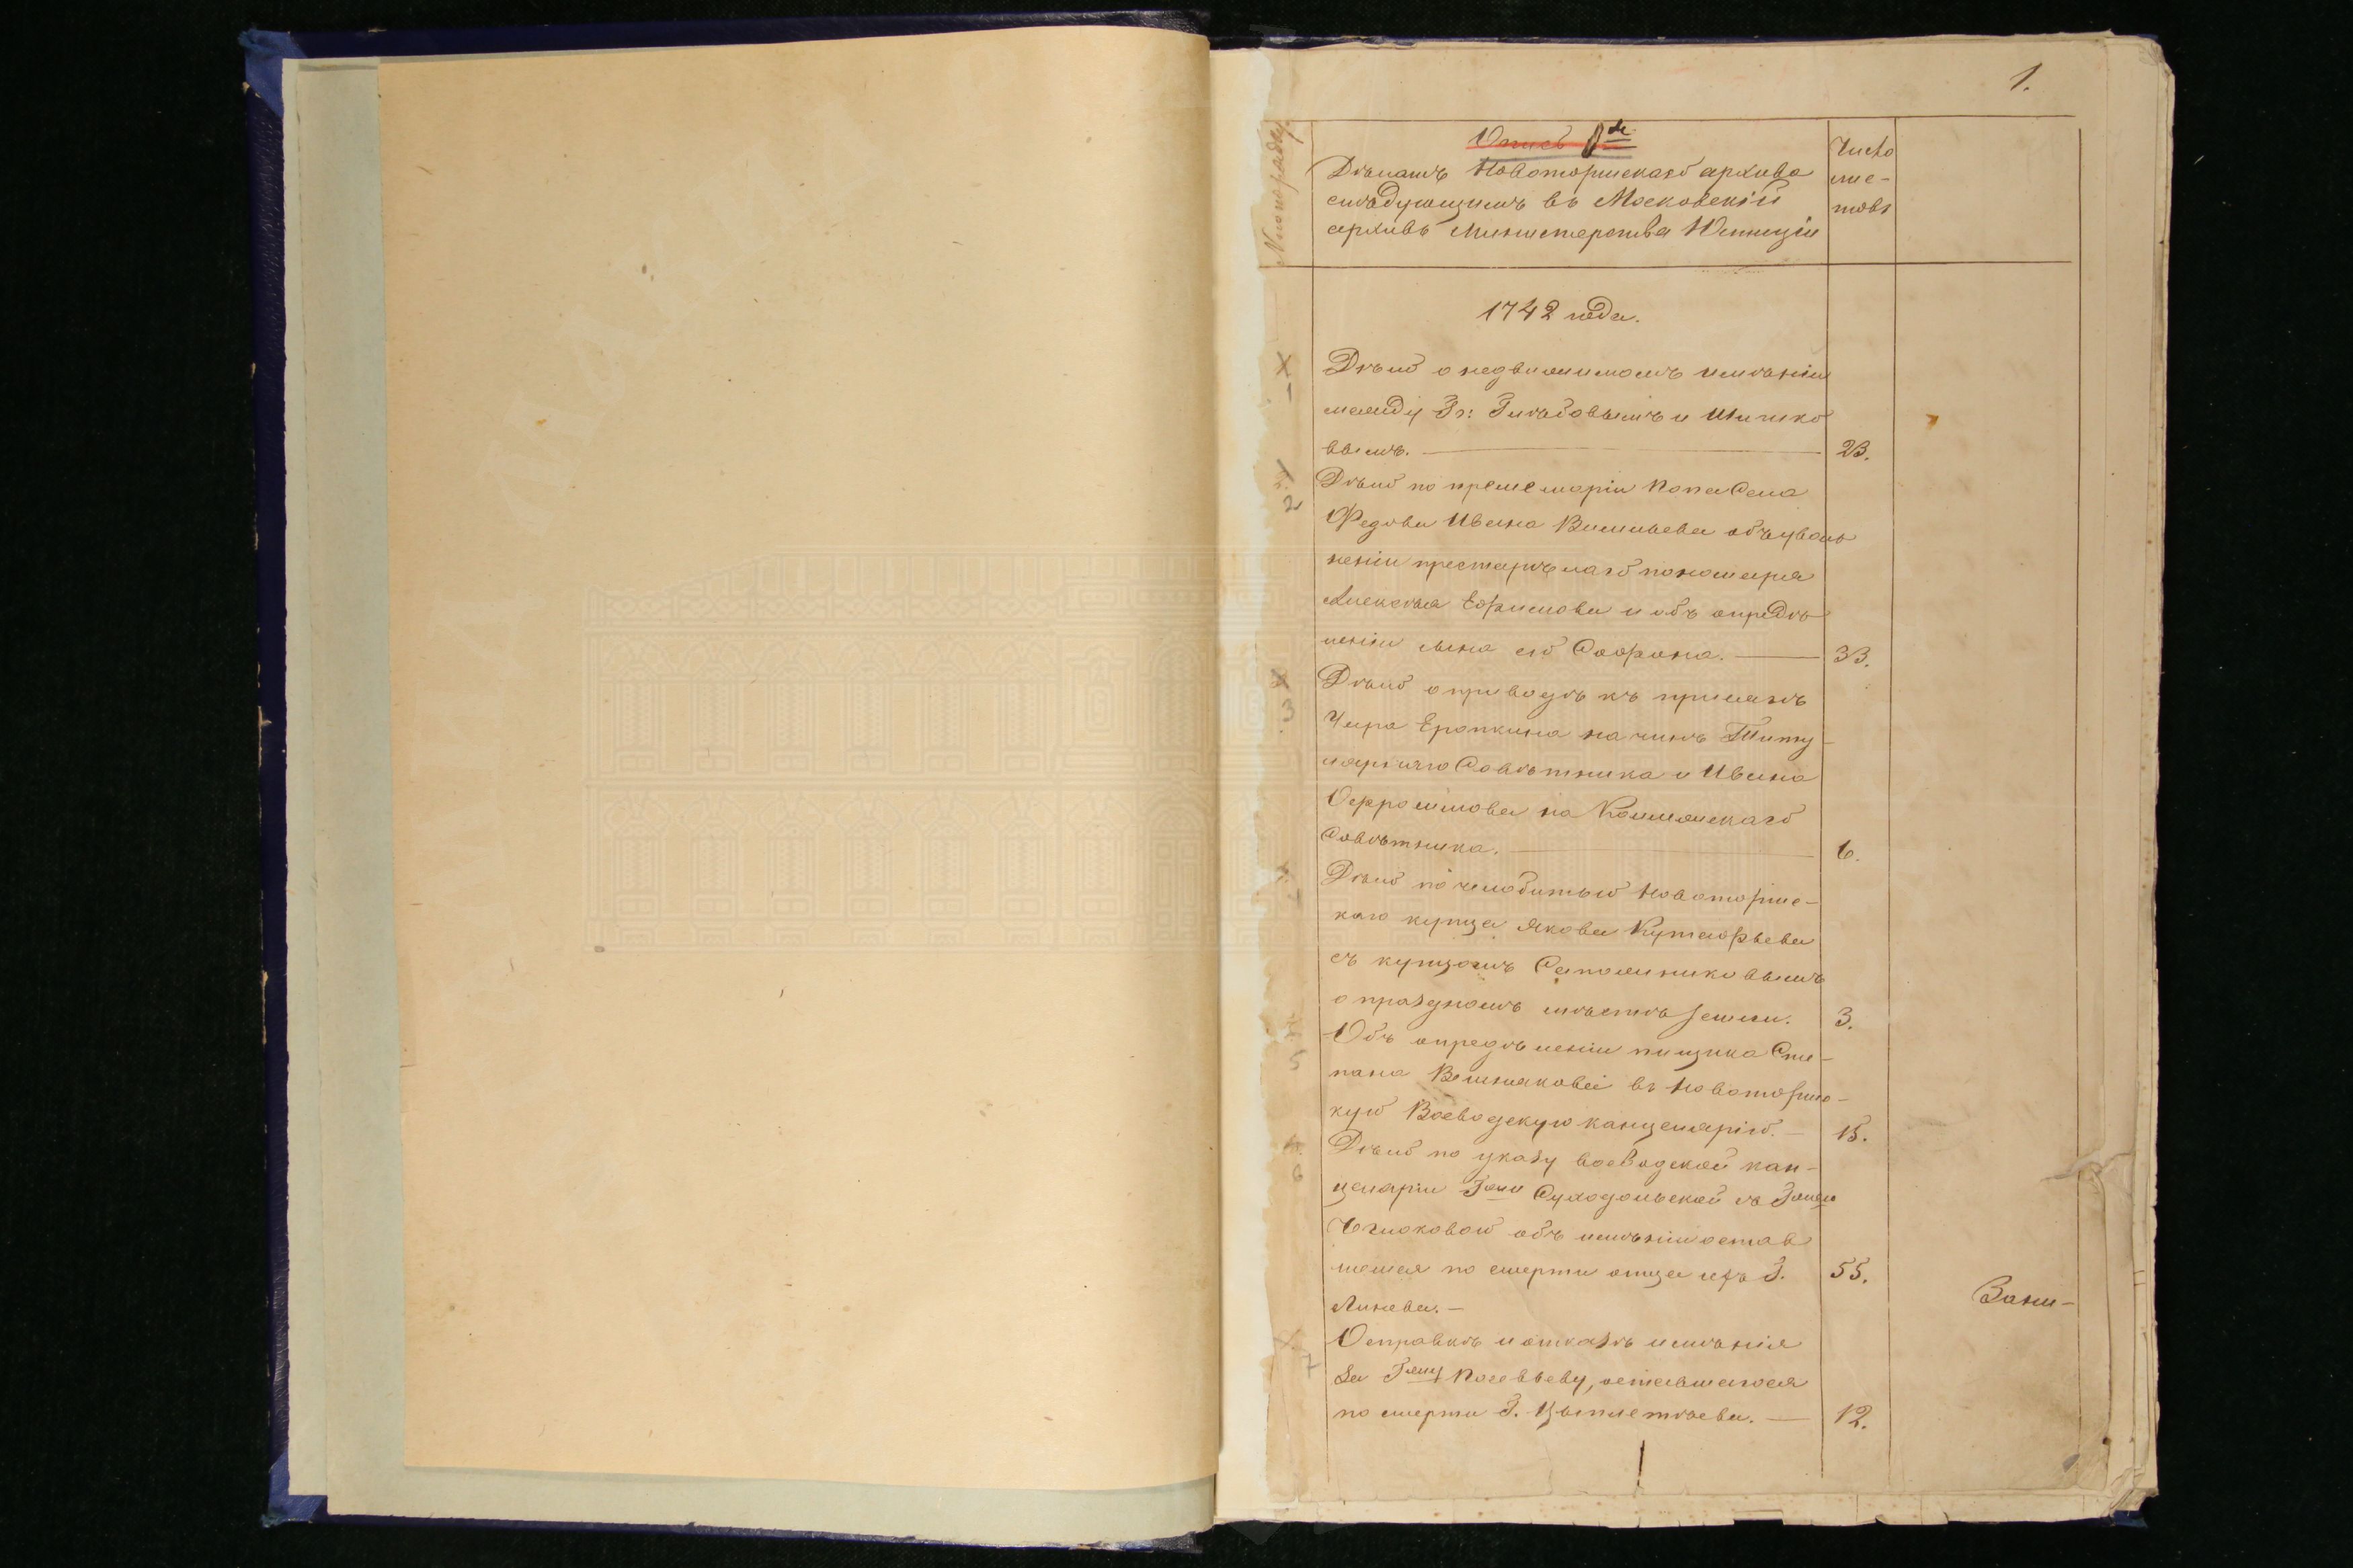 1.
№ по порядку.
Опись
Дѣламъ Новоторжскаго архива
слѣдующимъ въ Московскій
архивъ Министерства Юстиціи
Число
лис-
товъ
1742 года.
1
Дѣло о недвижимомъ имѣніи
между Гг: Глѣбовымъ и Шишко
вымъ. — 23.
2
Дѣло по промеморіи попа села
Федова Ивана Васильева объ уволь
неніи престарѣлаго пономаря
Алексѣя Ефимова и объ опредѣ
леніи сына его Софрона. — 33.
3
Дѣло о приводѣ къ присягѣ
Еропкина на чинъ Титу-
лярнаго Совѣтника и Ивана
на Коллежскаго
Совѣтника. — 6.
Дѣло по челобитью Новоторжс-
каго купца Якова
съ купцомъ Сапожниковымъ
о праздномъ мѣстѣ земли. 3.
5
Объ опредѣленіи пищика Сте-
пана Вишнякова въ Новоторжс-
кую Воеводскую канцелярію. — 15.
6
Дѣло по указу воеводской кан-
целяріи Г-жи Суходольской съ Г-жею
объ имѣніи остав
шемся по смерти отца ихъ Г. 55.
Линева. —
7
О справкѣ и отказѣ имѣнія
за Г-жу оставшагося
по смерти Г. Цыплетева. — 12.
Зани-